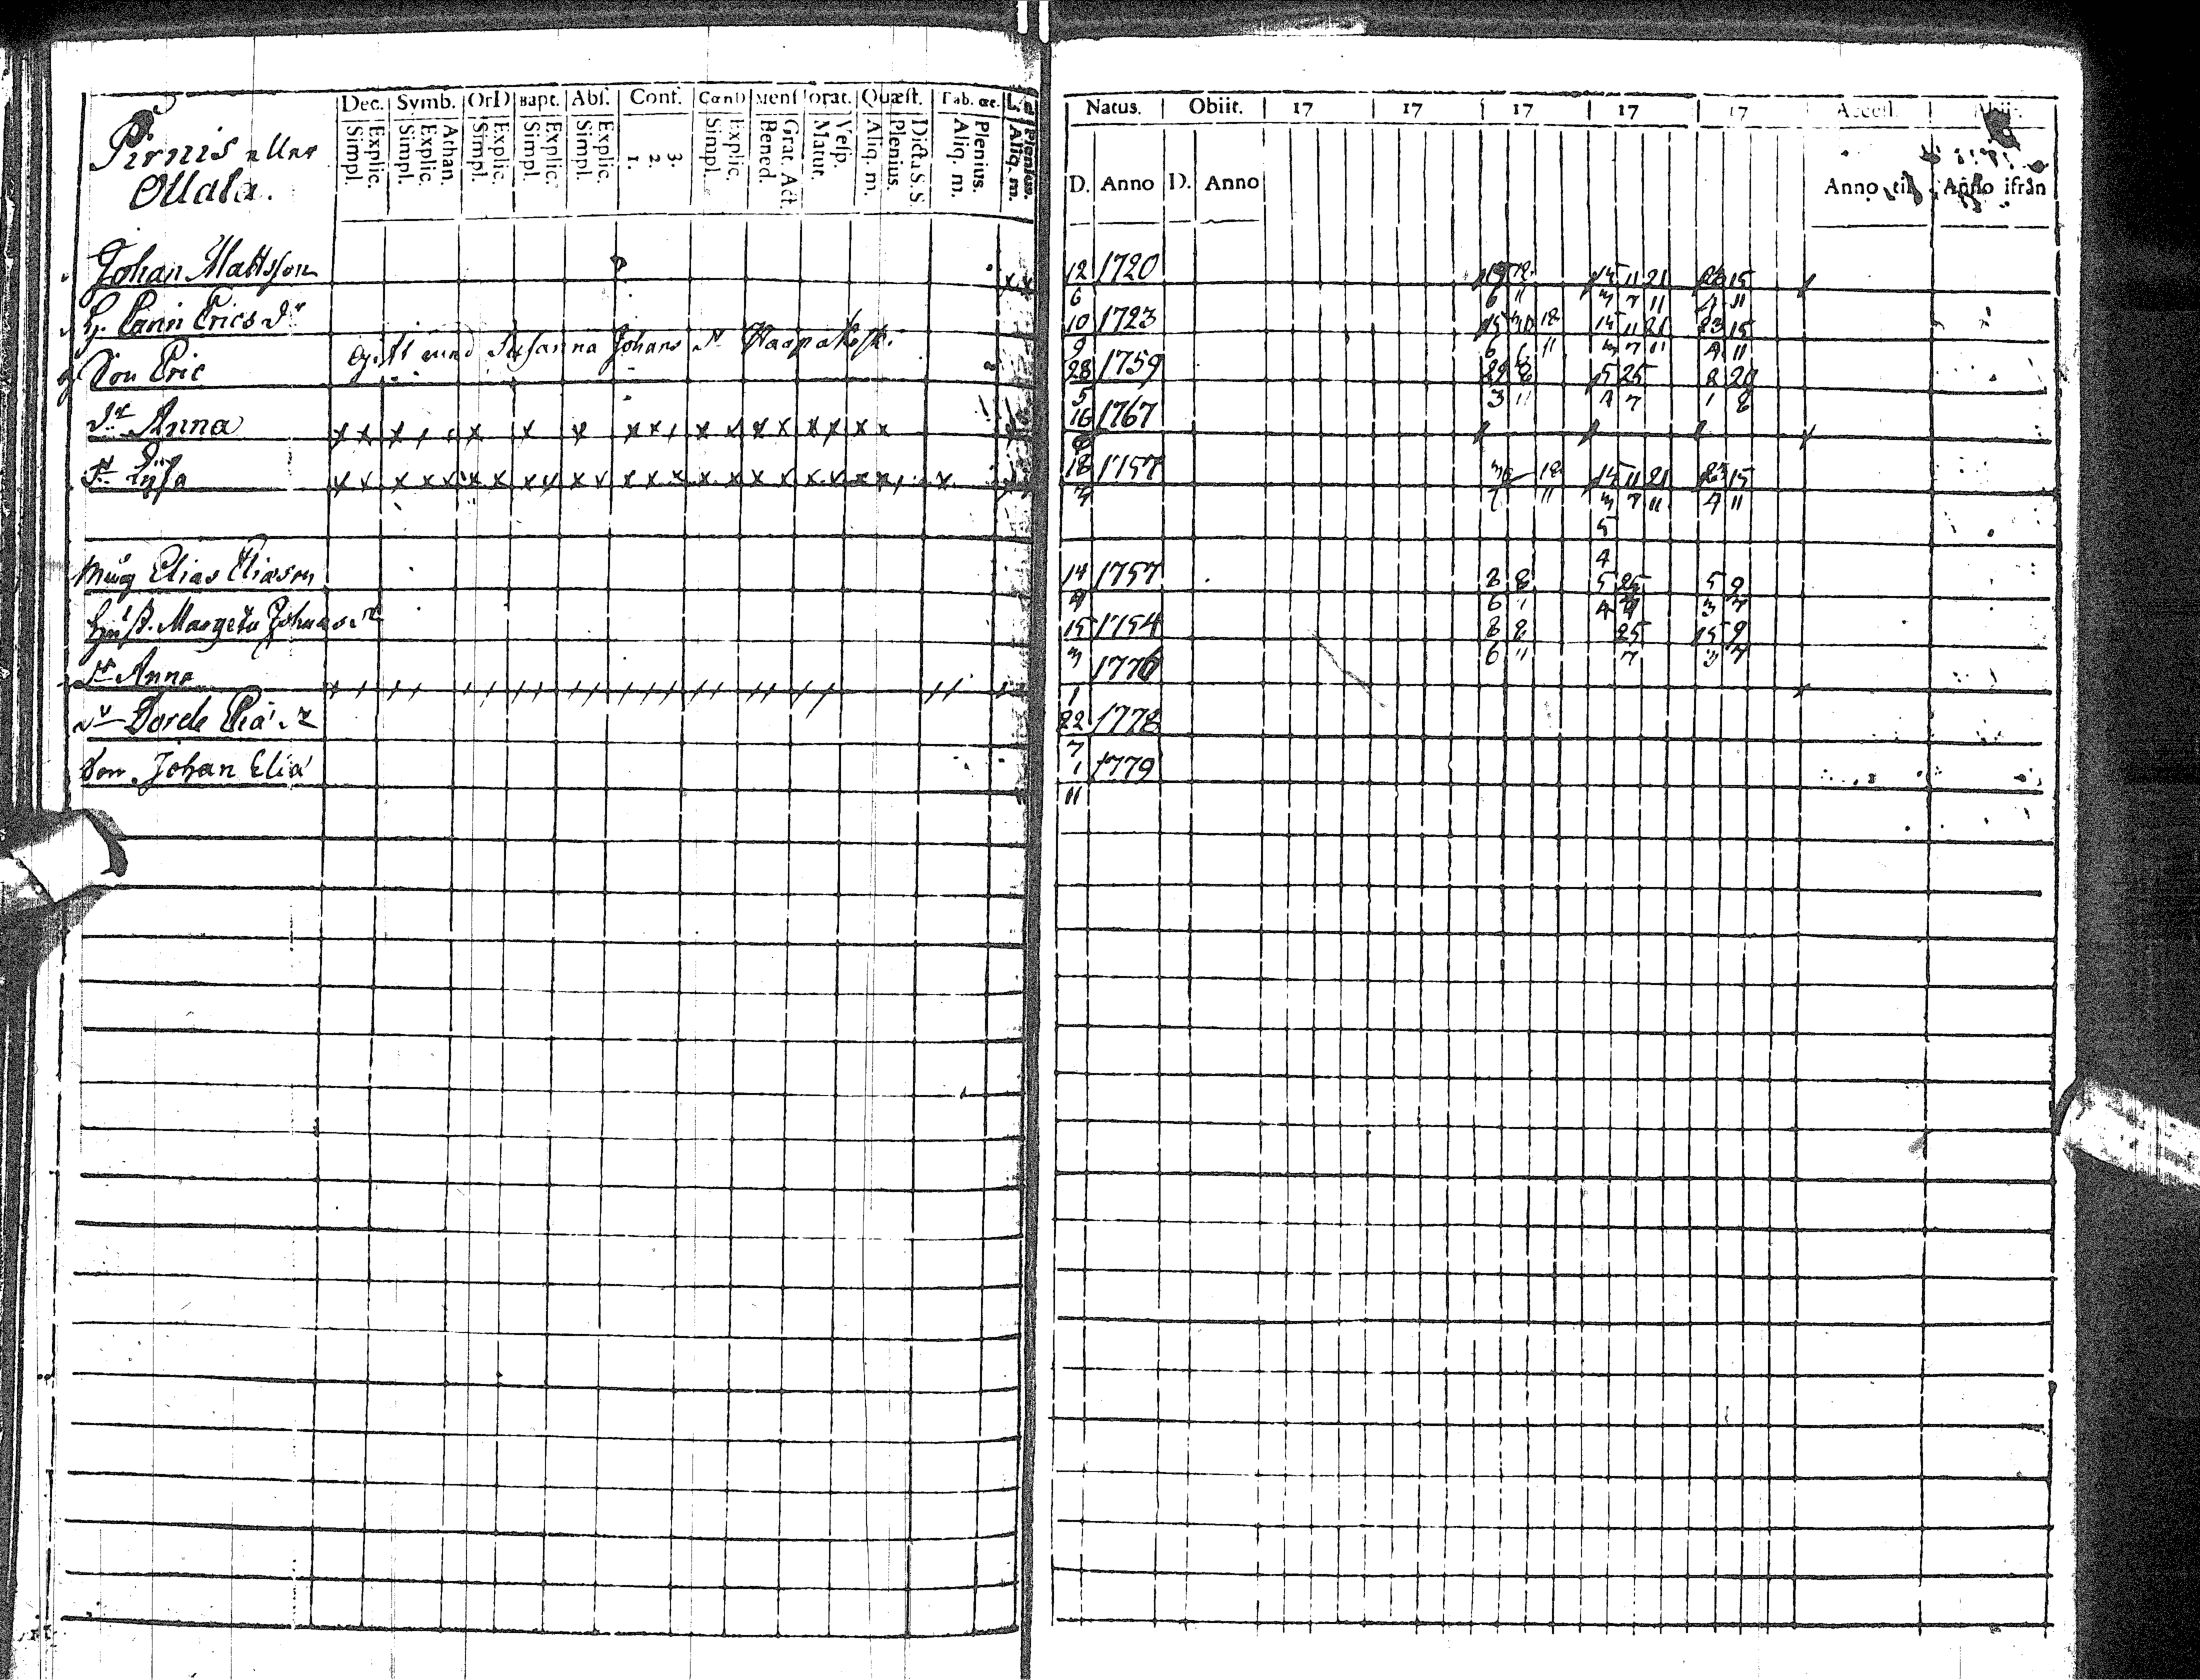 Pirnis eller
Ollala.
Dec. Symb. OrD Bapt. Abs. Conf. CœnD Mens orat. Quæst. Tab. œc.
Simpl. Explic. Simpl. Explic. Athan. Simpl. Explic. Simpl. Explic. Simpl. Explic. 1. 2. 3. Simpl. Explic. Bened. Grat. Act. Matut. Vesp. Aliq. m. Plenius. Dicta S. S. Aliq. m. Plenius. Aliq. m. Plenius.
Natus. Obiit. 17 17 17 17 17 Access. Abiit.
D. Anno D. Anno Anno til Anno ifrån
Johan Mattsson 12 1720 15 11 21 15
6 6 11 3 7 11 4 11
H. Carin Erics dr 10 1723 15 18 15 11 21 23 15
9 6 6 11 3 7 11 4 11
Son Eric gift med Susanna Johans dr Haapakoski. 28 1759 5 25 2 20
5 3 11 4 7 1 8
dr Anna x x x x x x x x x x x x x x x x x 16 1767
dr Lisa x x x x x x x x x x x x x x x x x x x x x x x 18 1757 18 15 11 21 23 15
7 11 3 7 11 4 11
5
4
Måg Elias Eliasson 14 1757 8 8 5 25 5 9
9 6 11 4 7 3 7
Hust. Margeta Johans dr 15 1754 8 8 25 15 9
3 6 11 7 3 7
dr Anna 1776
1
dr Dorde Elia dr 22 1778
7
Son Johan Elia 1 1779
11